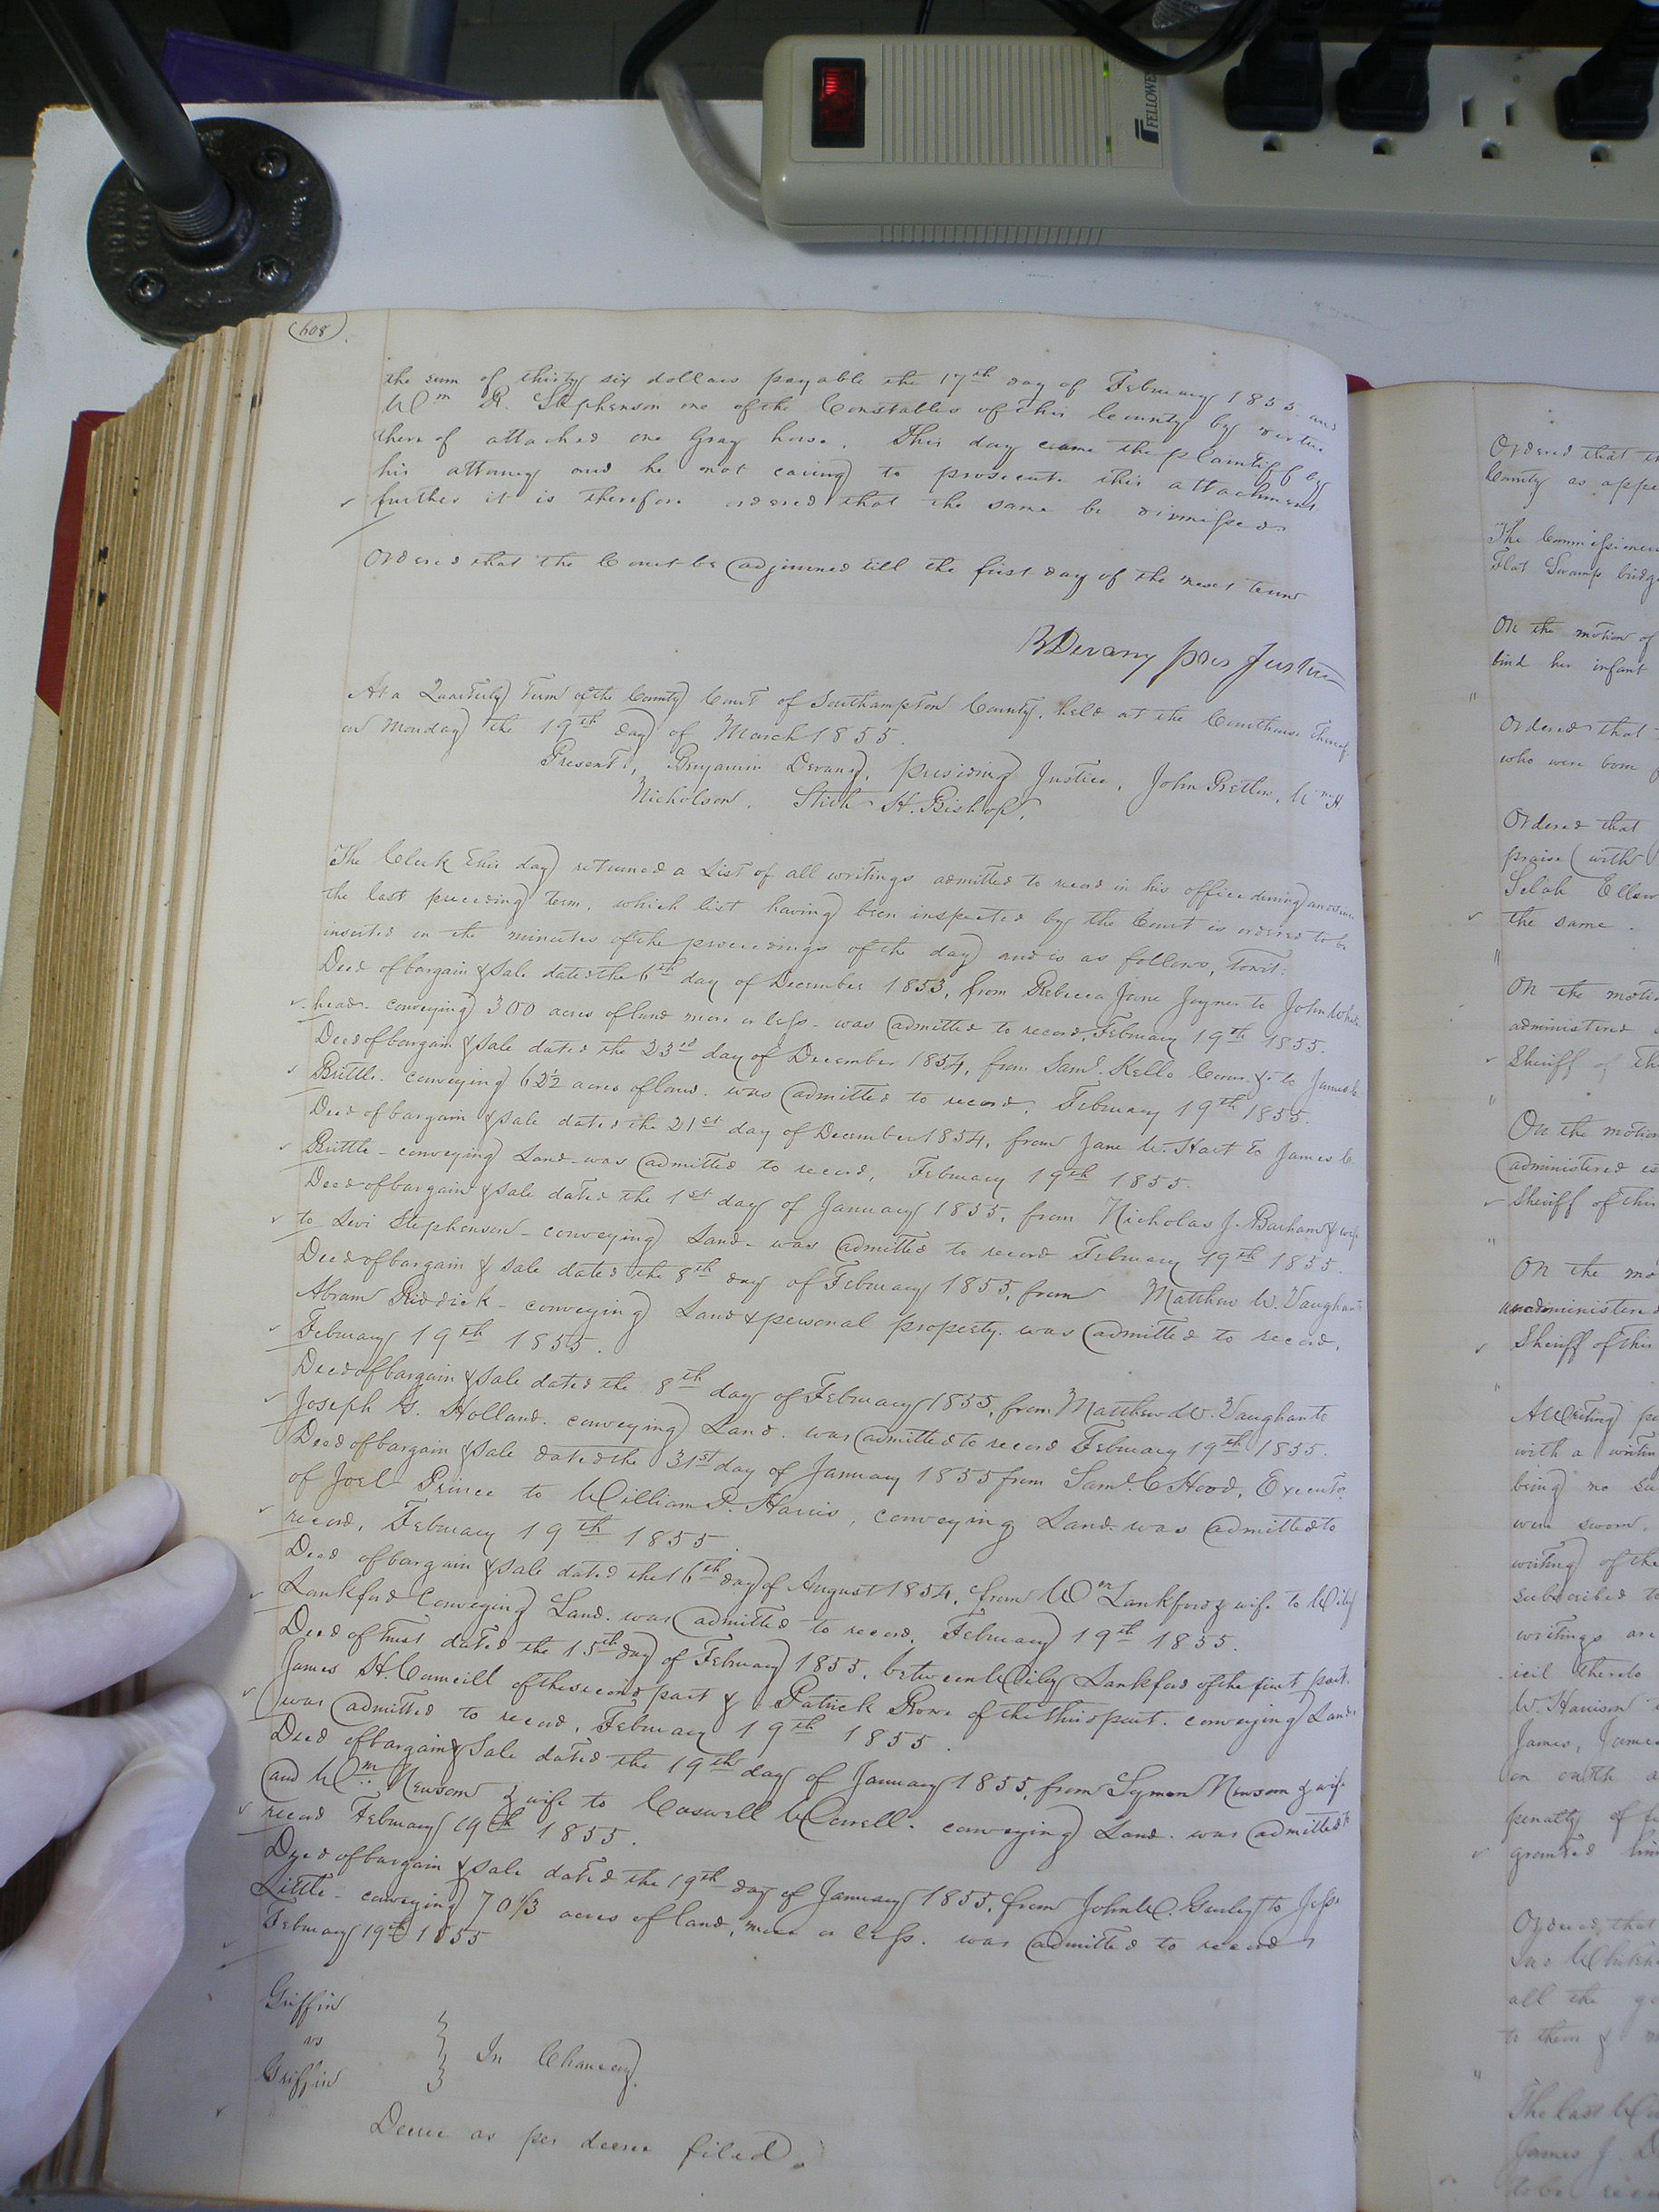 FELLOWES
(608)
the sum of thirty six dollars payable the 17th day of February 1855 and
Wm R. Stephenson one of the Constables of this County by virtue
thereof attached one Gray horse. This day came the plaintiff by
his attorney and he not caring to prosecute this attachment
further it is therefore ordered that the same be dismissed.
Ordered that the Court be adjourned till the first day of the next term
B Devany pres Justice
At a Quarterly Term of the County Court of Southampton County, held at the Courthouse thereof
on Monday the 19th day of March 1855.
Present, Benjamin Devany, presiding Justice, John Pretlow, Wm H
Nicholson, Stith H. Bishop.
The Clerk this day returned a List of all writings admitted to record in his office during and since
the last preceeding term, which list having been inspected by the Court is ordered to be
inserted in the minutes of the proceedings of the day and is as follows, Towit:
Deed of bargain & Sale dated the 6th day of December 1853, from Rebecca Jane Joyner to John White-
head. conveying 300 acres of land more or less. was admitted to record, February 19th 1855.
Deed of bargain & Sale dated the 23rd day of December 1854, from Saml. Kello Comr. &c to James C.
Brittle. conveying 62½ acres of land. was admitted to record, February 19th 1855.
Deed of bargain & Sale dated the 21st day of December 1854, from Jane W. Hart to James C.
Brittle - conveying Land - was admitted to record, February 19th 1855.
Deed of bargain & Sale dated the 1st day of January 1855, from Nicholas J. Barham & wife
to Levi Stephenson - conveying Land - was admitted to record February 19th 1855.
Deed of bargain & Sale dated the 8th day of February 1855, from Matthew W. Vaughan to
Abram Riddick - conveying Land & personal property. was admitted to record,
February 19th 1855.
Deed of bargain & Sale dated the 8th day of February 1855, from Matthew W. Vaughan to
Joseph G. Holland. conveying Land. was admitted to record February 19th 1855.
Deed of bargain & Sale dated the 31st day of January 1855 from Saml. C Hood, Executor
of Joel Prince to William P. Harris, conveying Land. was admitted to
record, February 19th 1855.
Deed of bargain & Sale dated the 16th day of August 1854, from Wm Lankford & wife to Wiley
Lankford Conveying Land. was admitted to record, February 19th 1855.
Deed of trust dated the 15th day of February 1855, between Wiley Lankford of the first part,
James H. Councill of the second part & Patrick Rowe of the third part. conveying Land
was admitted to record, February 19th 1855.
Deed of bargain & Sale dated the 19th day of January 1855, from Lyman Newsom & wife
and Wm Newsom & wife to Caswell Worrell. conveying Land. was admitted to
record February 19th 1855.
Deed of bargain & Sale dated the 19th day of January 1855, from John W. Gurley to Jesse
Little - conveying 70⅓ acres of land, more or less. was admitted to record
February 19th 1855
Griffin
vs
Griffin
In Chancery.
Decree as per decree filed.
Ordered that
County as appe
The Commissioners
Flat Swamp bridge
On the motion of
bind her infant
Ordered that
who were born
Ordered that
praise (with
Selah Ellsw
the same.
On the motion
administered
Sheriff of th
On the motion
administered es
Sheriff of this
On the mo
administered
Sheriff of this
A Writing pu
with a writin
being no su
were sworn.
writing of the
subscribed to
writings are
icil thereto
W. Harrison
James, James
on oath a
penalty of
granted him
Ordered, that
all the
to them &
The last Wi
James J. D
to be